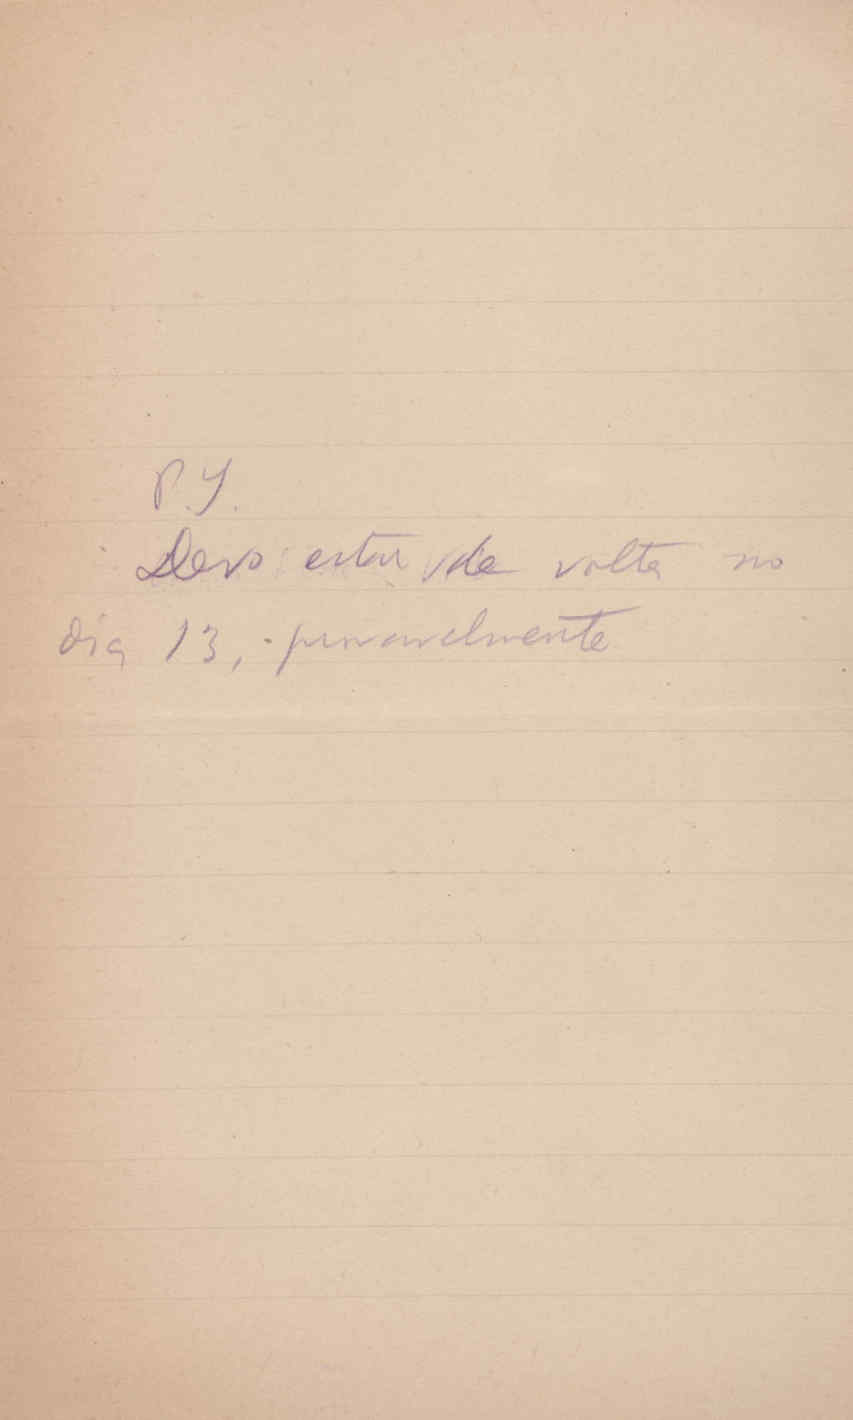 P.S.
Devo estar de volta no
dia 13, provavelmente